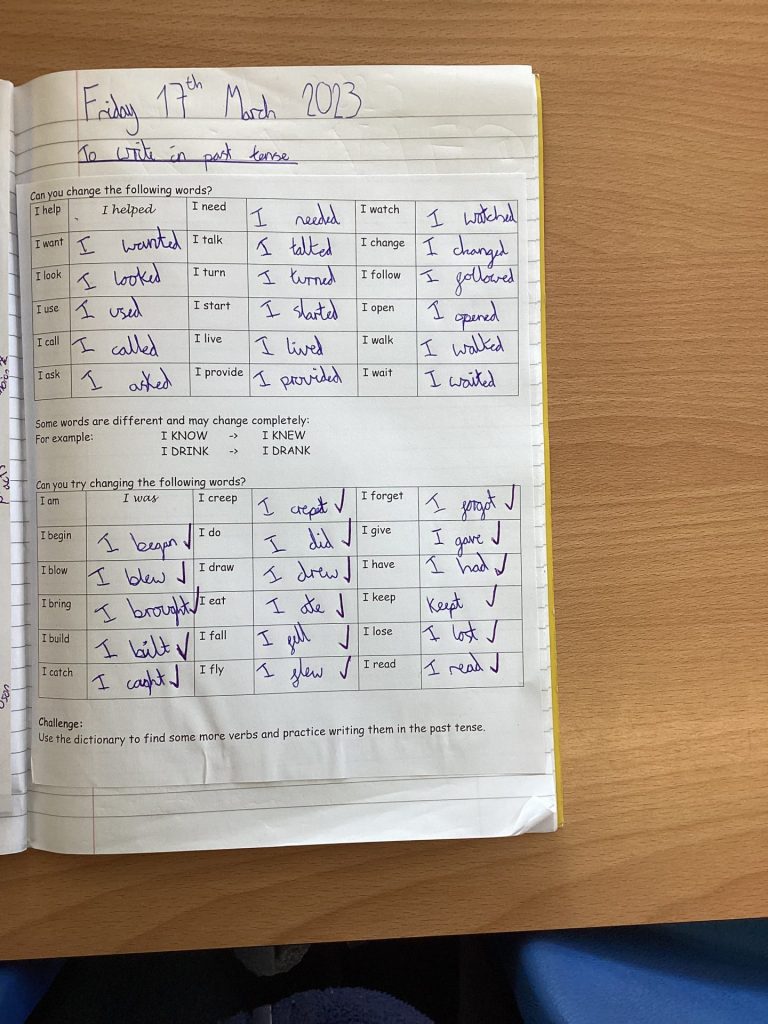 Friday 17th March 2023
To write in past tense
Can you change the following words?
I help I helped I need I needed I watch I watched
I want I wanted I talk I talted I change I changed
I look I looked I turn I turned I follow I followed
I use I used I start I started I open I opened
I call I called I live I lived I walk I walked
I ask I asked I provide I provided I wait I waited
Some words are different and may change completely:
For example: I KNOW -> I KNEW
I DRINK -> I DRANK
Can you try changing the following words?
I am I was I creep I crept ✓ I forget I forgot ✓
I begin I began ✓ I do I did ✓ I give I gave ✓
I blow I blew ✓ I draw I drew ✓ I have I had ✓
I bring I brought ✓ I eat I ate ✓ I keep Kept ✓
I build I bilt ✓ I fall I fell ✓ I lose I lost ✓
I catch I caght ✓ I fly I flew ✓ I read I read ✓
Challenge:
Use the dictionary to find some more verbs and practice writing them in the past tense.